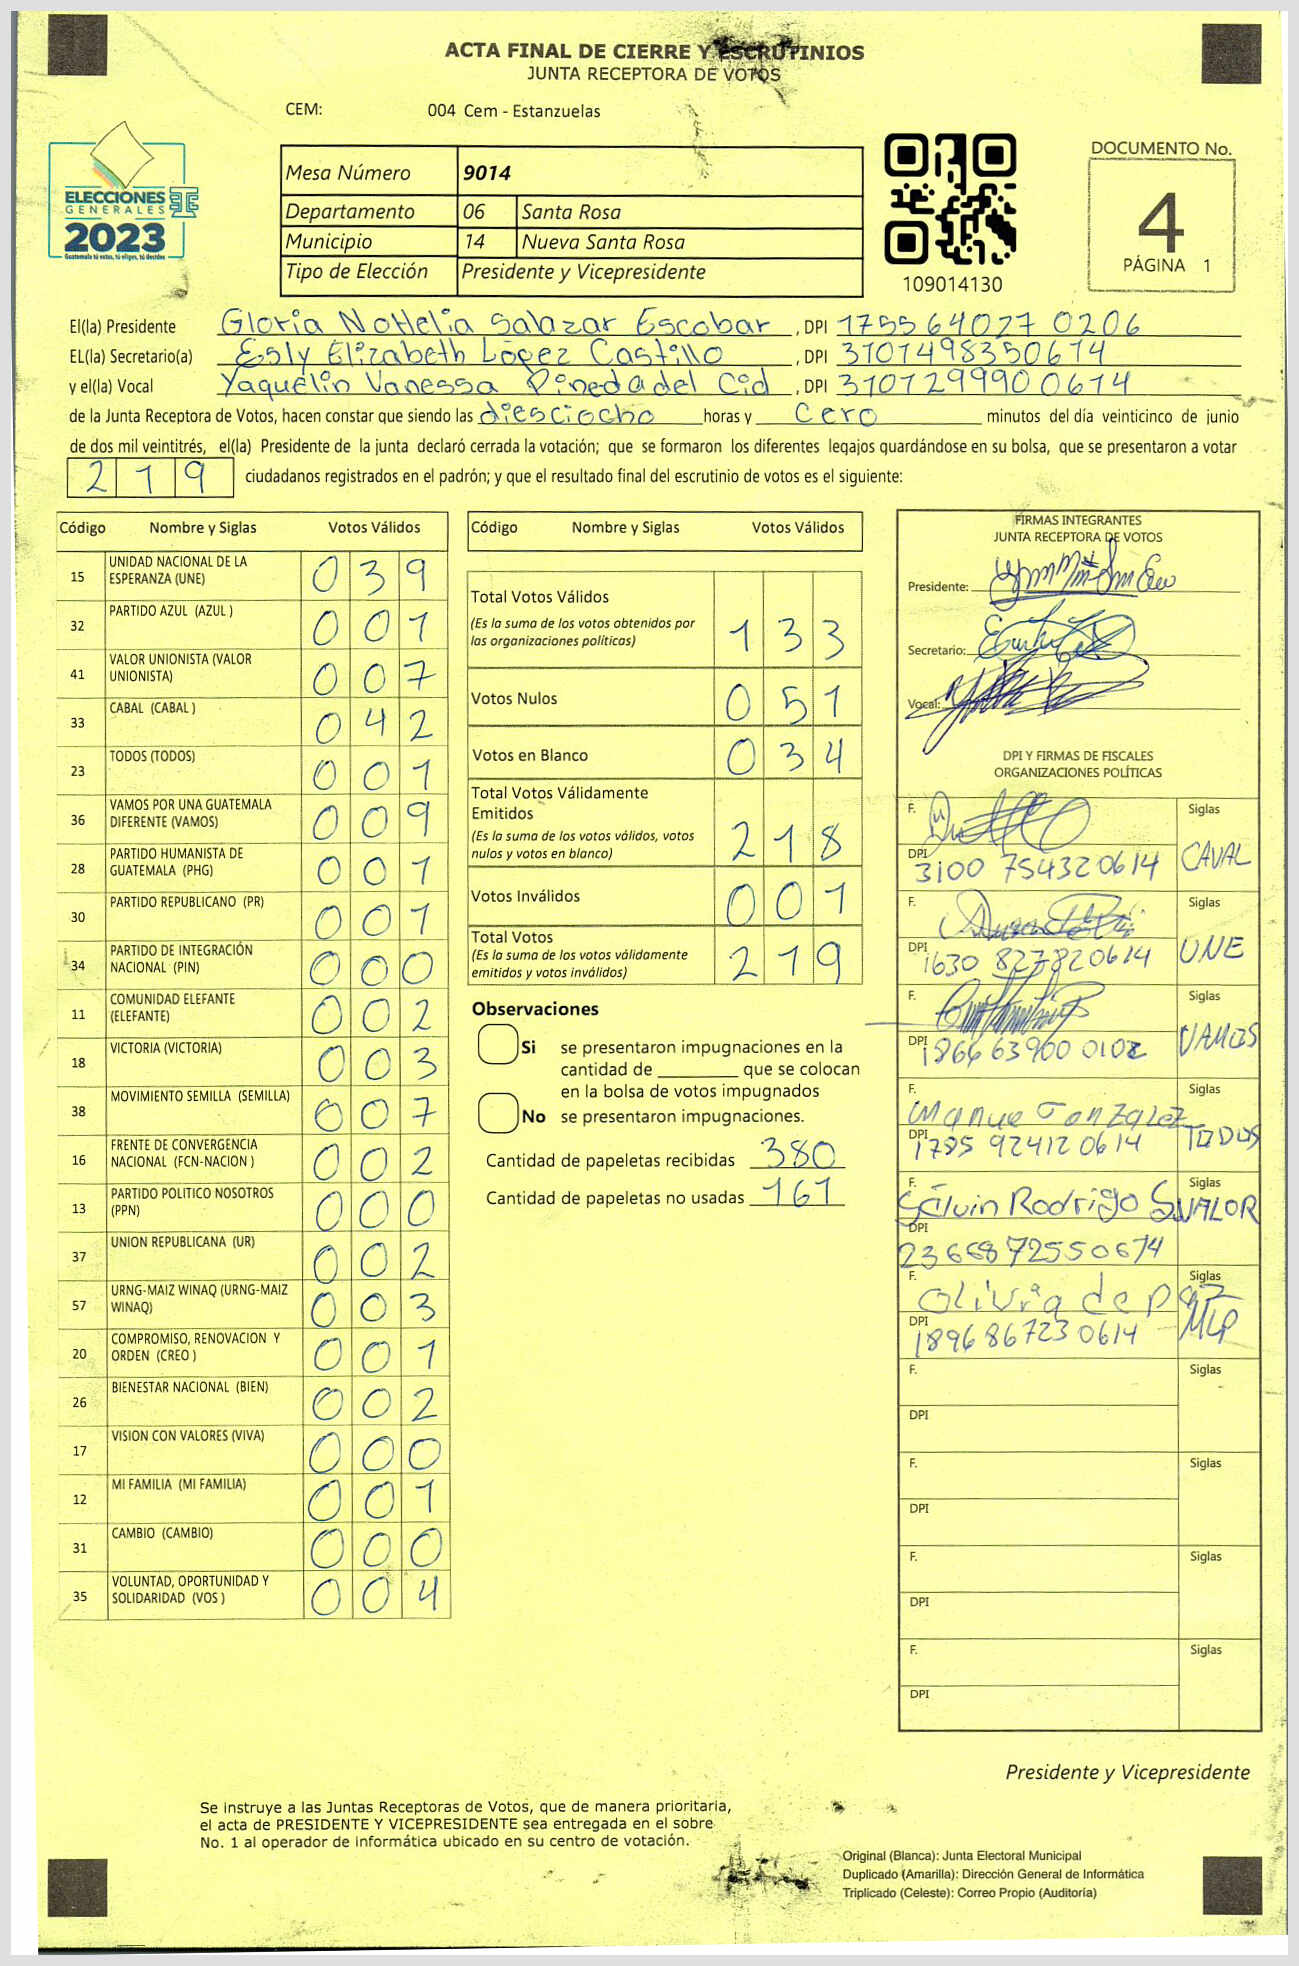 ACTA FINAL DE CIERRE Y ESCRUTINIOS
JUNTA RECEPTORA DE VOTOS
CEM: 004 Cem - Estanzuelas
ELECCIONES
GENERALES
2023
Guatemala tú votas, tú eliges, tú decides
Mesa Número 9014
Departamento 06 Santa Rosa
Municipio 14 Nueva Santa Rosa
Tipo de Elección Presidente y Vicepresidente
109014130
DOCUMENTO No.
4
PÁGINA 1
El(la) Presidente Gloria Nohelia Salazar Escobar, DPI 175564027 0206
EL(la) Secretario(a) Esly Elizabeth López Castillo, DPI 3101498350614
y el(la) Vocal Yaquelin Vanessa Pineda del Cid, DPI 3101299900614
de la Junta Receptora de Votos, hacen constar que siendo las diesciocho horas y cero minutos del día veinticinco de junio
de dos mil veintitrés, el(la) Presidente de la junta declaró cerrada la votación; que se formaron los diferentes legajos quardándose en su bolsa, que se presentaron a votar
219 ciudadanos registrados en el padrón; y que el resultado final del escrutinio de votos es el siguiente:
Código Nombre y Siglas Votos Válidos
15 UNIDAD NACIONAL DE LA ESPERANZA (UNE) 039
32 PARTIDO AZUL (AZUL ) 001
41 VALOR UNIONISTA (VALOR UNIONISTA) 007
33 CABAL (CABAL ) 042
23 TODOS (TODOS) 001
36 VAMOS POR UNA GUATEMALA DIFERENTE (VAMOS) 009
28 PARTIDO HUMANISTA DE GUATEMALA (PHG) 001
30 PARTIDO REPUBLICANO (PR) 001
34 PARTIDO DE INTEGRACIÓN NACIONAL (PIN) 000
11 COMUNIDAD ELEFANTE (ELEFANTE) 002
18 VICTORIA (VICTORIA) 003
38 MOVIMIENTO SEMILLA (SEMILLA) 007
16 FRENTE DE CONVERGENCIA NACIONAL (FCN-NACION ) 002
13 PARTIDO POLITICO NOSOTROS (PPN) 000
37 UNION REPUBLICANA (UR) 002
57 URNG-MAIZ WINAQ (URNG-MAIZ WINAQ) 003
20 COMPROMISO, RENOVACION Y ORDEN (CREO ) 001
26 BIENESTAR NACIONAL (BIEN) 002
17 VISION CON VALORES (VIVA) 000
12 MI FAMILIA (MI FAMILIA) 001
31 CAMBIO (CAMBIO) 000
35 VOLUNTAD, OPORTUNIDAD Y SOLIDARIDAD (VOS ) 004
Código Nombre y Siglas Votos Válidos
Total Votos Válidos 133
(Es la suma de los votos obtenidos por
las organizaciones políticas)
Votos Nulos 051
Votos en Blanco 034
Total Votos Válidamente
Emitidos 218
(Es la suma de los votos válidos, votos
nulos y votos en blanco)
Votos Inválidos 001
Total Votos 219
(Es la suma de los votos válidamente
emitidos y votos inválidos)
Observaciones
Si se presentaron impugnaciones en la
cantidad de ________ que se colocan
en la bolsa de votos impugnados
No se presentaron impugnaciones.
Cantidad de papeletas recibidas 380
Cantidad de papeletas no usadas 161
FIRMAS INTEGRANTES
JUNTA RECEPTORA DE VOTOS
Presidente:
Secretario:
Vocal:
DPI Y FIRMAS DE FISCALES
ORGANIZACIONES POLÍTICAS
F. Siglas
DPI 3100 75432 0614 CAVAL
F. Siglas
DPI 1630 82782 0614 UNE
F. Siglas
DPI 1866 63900 0102 VAMOS
F. Siglas
DPI 1785 92412 0614 TODOS
F. Rodrigo Siglas
DPI 23668 7255 0614 VALOR
F. Olivia de paz Siglas
DPI 1896 86723 0614 MLP
F. Siglas
DPI
F. Siglas
DPI
F. Siglas
DPI
F. Siglas
DPI
Presidente y Vicepresidente
Se instruye a las Juntas Receptoras de Votos, que de manera prioritaria,
el acta de PRESIDENTE Y VICEPRESIDENTE sea entregada en el sobre
No. 1 al operador de informática ubicado en su centro de votación.
Original (Blanca): Junta Electoral Municipal
Duplicado (Amarilla): Dirección General de Informática
Triplicado (Celeste): Correo Propio (Auditoría)